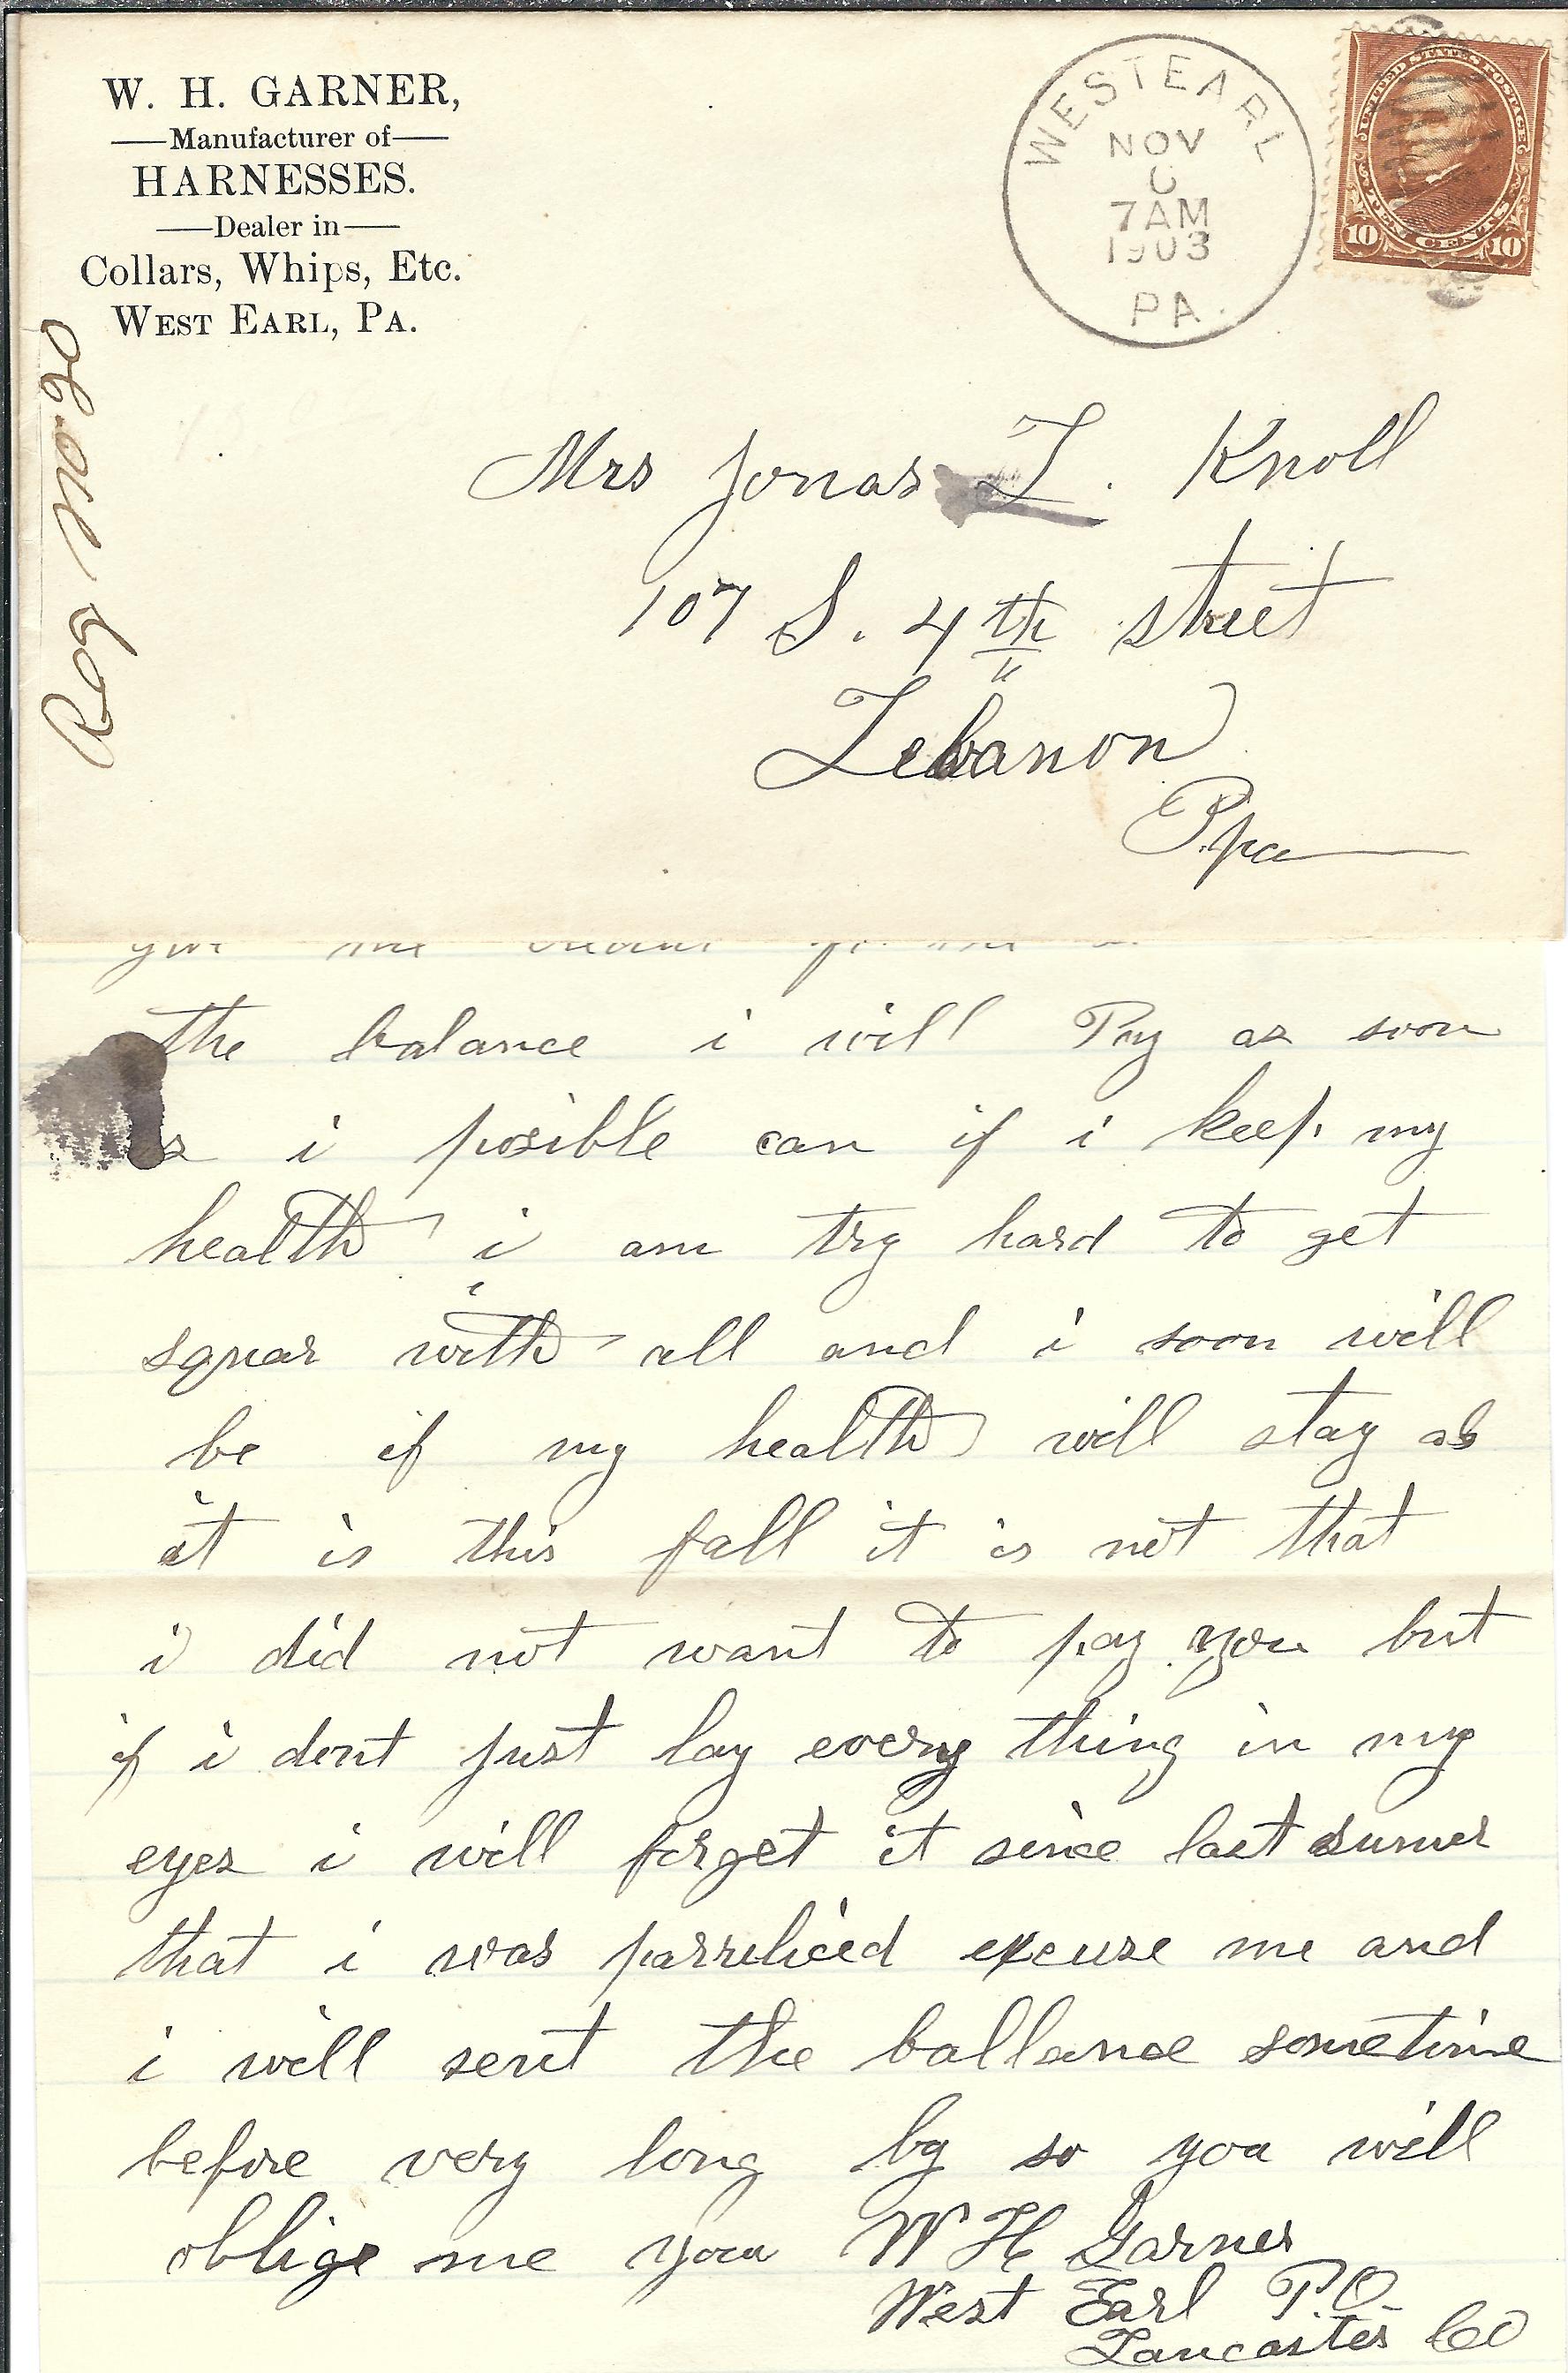 W. H. GARNER,
Manufacturer of
HARNESSES.
Dealer in
Collars, Whips, Etc.
WEST EARL, PA.
WEST EARL
NOV
7AM
1903
PA.
UNITED STATES POSTAGE
10 TEN CENTS 10
Reg no. 90
Mrs Jonas L. Knoll
107 S. 4th street
Lebanon
Pa
the balance i will Pay as soon
as i posible can if i keep my
health i am try hard to get
squar with all and i soon will
be if my health will stay as
it is this fall it is not that
i did not want to pay you but
if i dont just lay every thing in my
eyes i will forget it since last sumer
that i was parreliced excuse me and
i will sent the ballance sometime
before very long by so you will
oblige me your W H Garner
West Earl P.O.
Lancaster Co